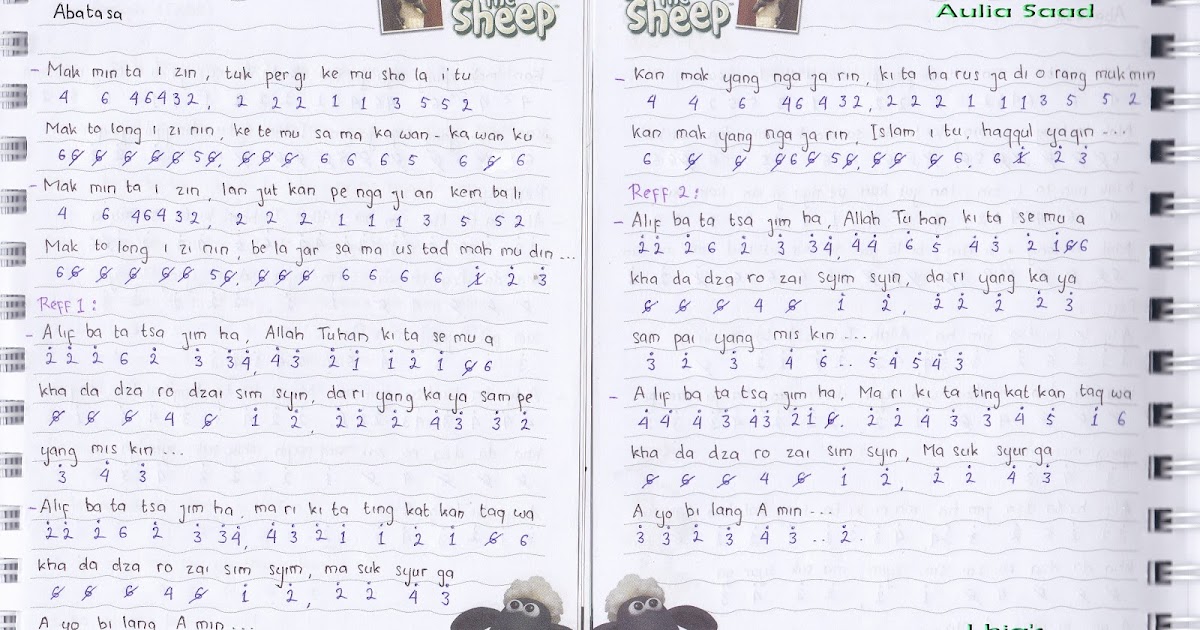 Abatasa
the Sheep
- Mak min ta i zin, tuk per gi ke mu sho la i tu
4 6 46432, 2 2 2 1 1 3 5 5 2
Mak to long i zi nin, ke te mu sa ma ka wan - ka wan ku
66 6 6 6 6 5 6, 6 6 6 6 6 6 5 6 6 6
- Mak min ta i zin, lan jut kan pe nga ji an kem ba li
4 6 46432, 2 2 2 1 1 1 3 5 5 2
Mak to long i zi nin, be la jar sa ma us tad mah mu din ...
66 6 6 6 6 5 6, 6 6 6 6 6 6 6 1 2 3
Reff 1 :
- Alif ba ta tsa jim ha, Allah Tuhan ki ta se mu a
2 2 2 6 2 3 3 4, 4 3 2 1 1 2 1 6 6
kha da dza ro dzai sim syin, da ri yang ka ya sam pe
6 6 6 4 6 1 2, 2 2 2 4 3 3 2
yang mis kin ...
3 4 3
- Alif ba ta tsa jim ha, ma ri ki ta ting kat kan taq wa
2 2 2 6 2 3 3 4, 4 3 2 1 1 2 1 6 6
kha da dza ro zai sim syim, ma suk syur ga
6 6 6 4 6 1 2, 2 2 4 3
A yo bi lang A min ...
Sheep
Aulia Saad
- Kan mak yang nga ja rin, ki ta ha rus ja di o rang muk min
4 4 6 46 4 32, 2 2 2 1 1 1 3 5 5 2
kan mak yang nga ja rin, Islam i tu, haqqul yaqin ...
6 6 6 6 6 6 5 6, 6 6 6 6. 6 1 2 3
Reff 2 :
- Alif ba ta tsa jim ha, Allah Tu han ki ta se mu a
2 2 2 6 2 3 3 4, 4 4 6 5 4 3 2 1 6 6
kha da dza ro zai syim syin, da ri yang ka ya
6 6 6 4 6 1 2, 2 2 2 2 3
sam pai yang mis kin ...
3 2 3 4 6 .. 5 4 5 4 3
- A lif ba ta tsa jim ha, Ma ri ki ta ting kat kan taq wa
4 4 4 3 4 3 2 1 6, 2 2 4 3 3 4 5 1 6
kha da dza ro zai sim syin, Ma suk syur ga
6 6 6 4 6 1 2, 2 2 4 3
A yo bi lang A min ...
3 3 2 3 4 3 .. 2.